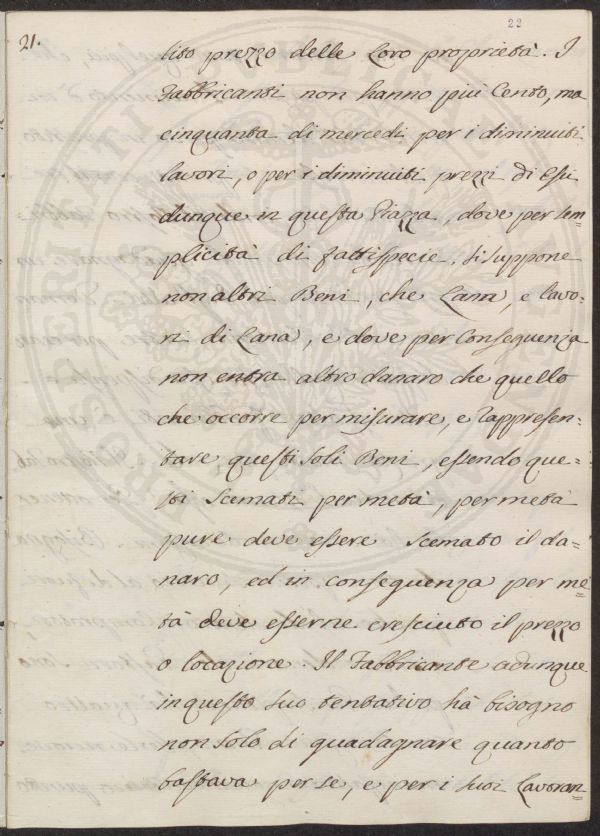 22
21.
lito prezzo delle Loro proprietà. I
Fabbricanti non hanno più Cento, ma
cinquanta di mercedi per i diminuiti
lavori, o per i diminuiti prezzi di Essi
dunque in questa Piazza, dove per sem=
plicità di fattispecie, si suppone
non altri Beni, che Lana, e lavo=
ri di Lana, e dove per Conseguenza
non entra altro danaro che quello
che occorre per misurare, e rappresen=
tare questi soli Beni, essendo que=
sti Scemati per metà, per metà
pure deve essere Scemato il da=
naro, ed in conseguenza per me=
tà deve esserne cresciuto il prezzo
o locazione. Il Fabbricante adunque
in questo suo tentativo hà bisogno
non solo di guadagnare quanto
bastava per se, e per i suoi Lavoran=